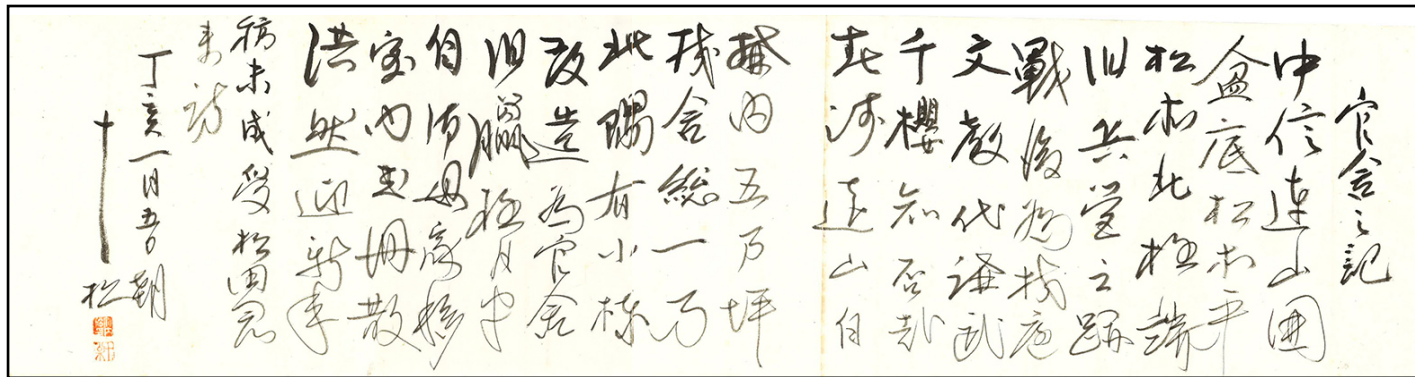 官舍之記
中信連山囲
盆底松本平
松本北極端
旧兵営之跡
戰後為校庭
文教代講武
千櫻知否哉
春浅遠山白
構内五万坪
校舍総一万
此隅有小棟
改造為官舍
旧臘極月中
自伯母家移
室内書冊散
洪然迎新年
稿未成受松田君
来訪
丁亥一月五日朝
十松